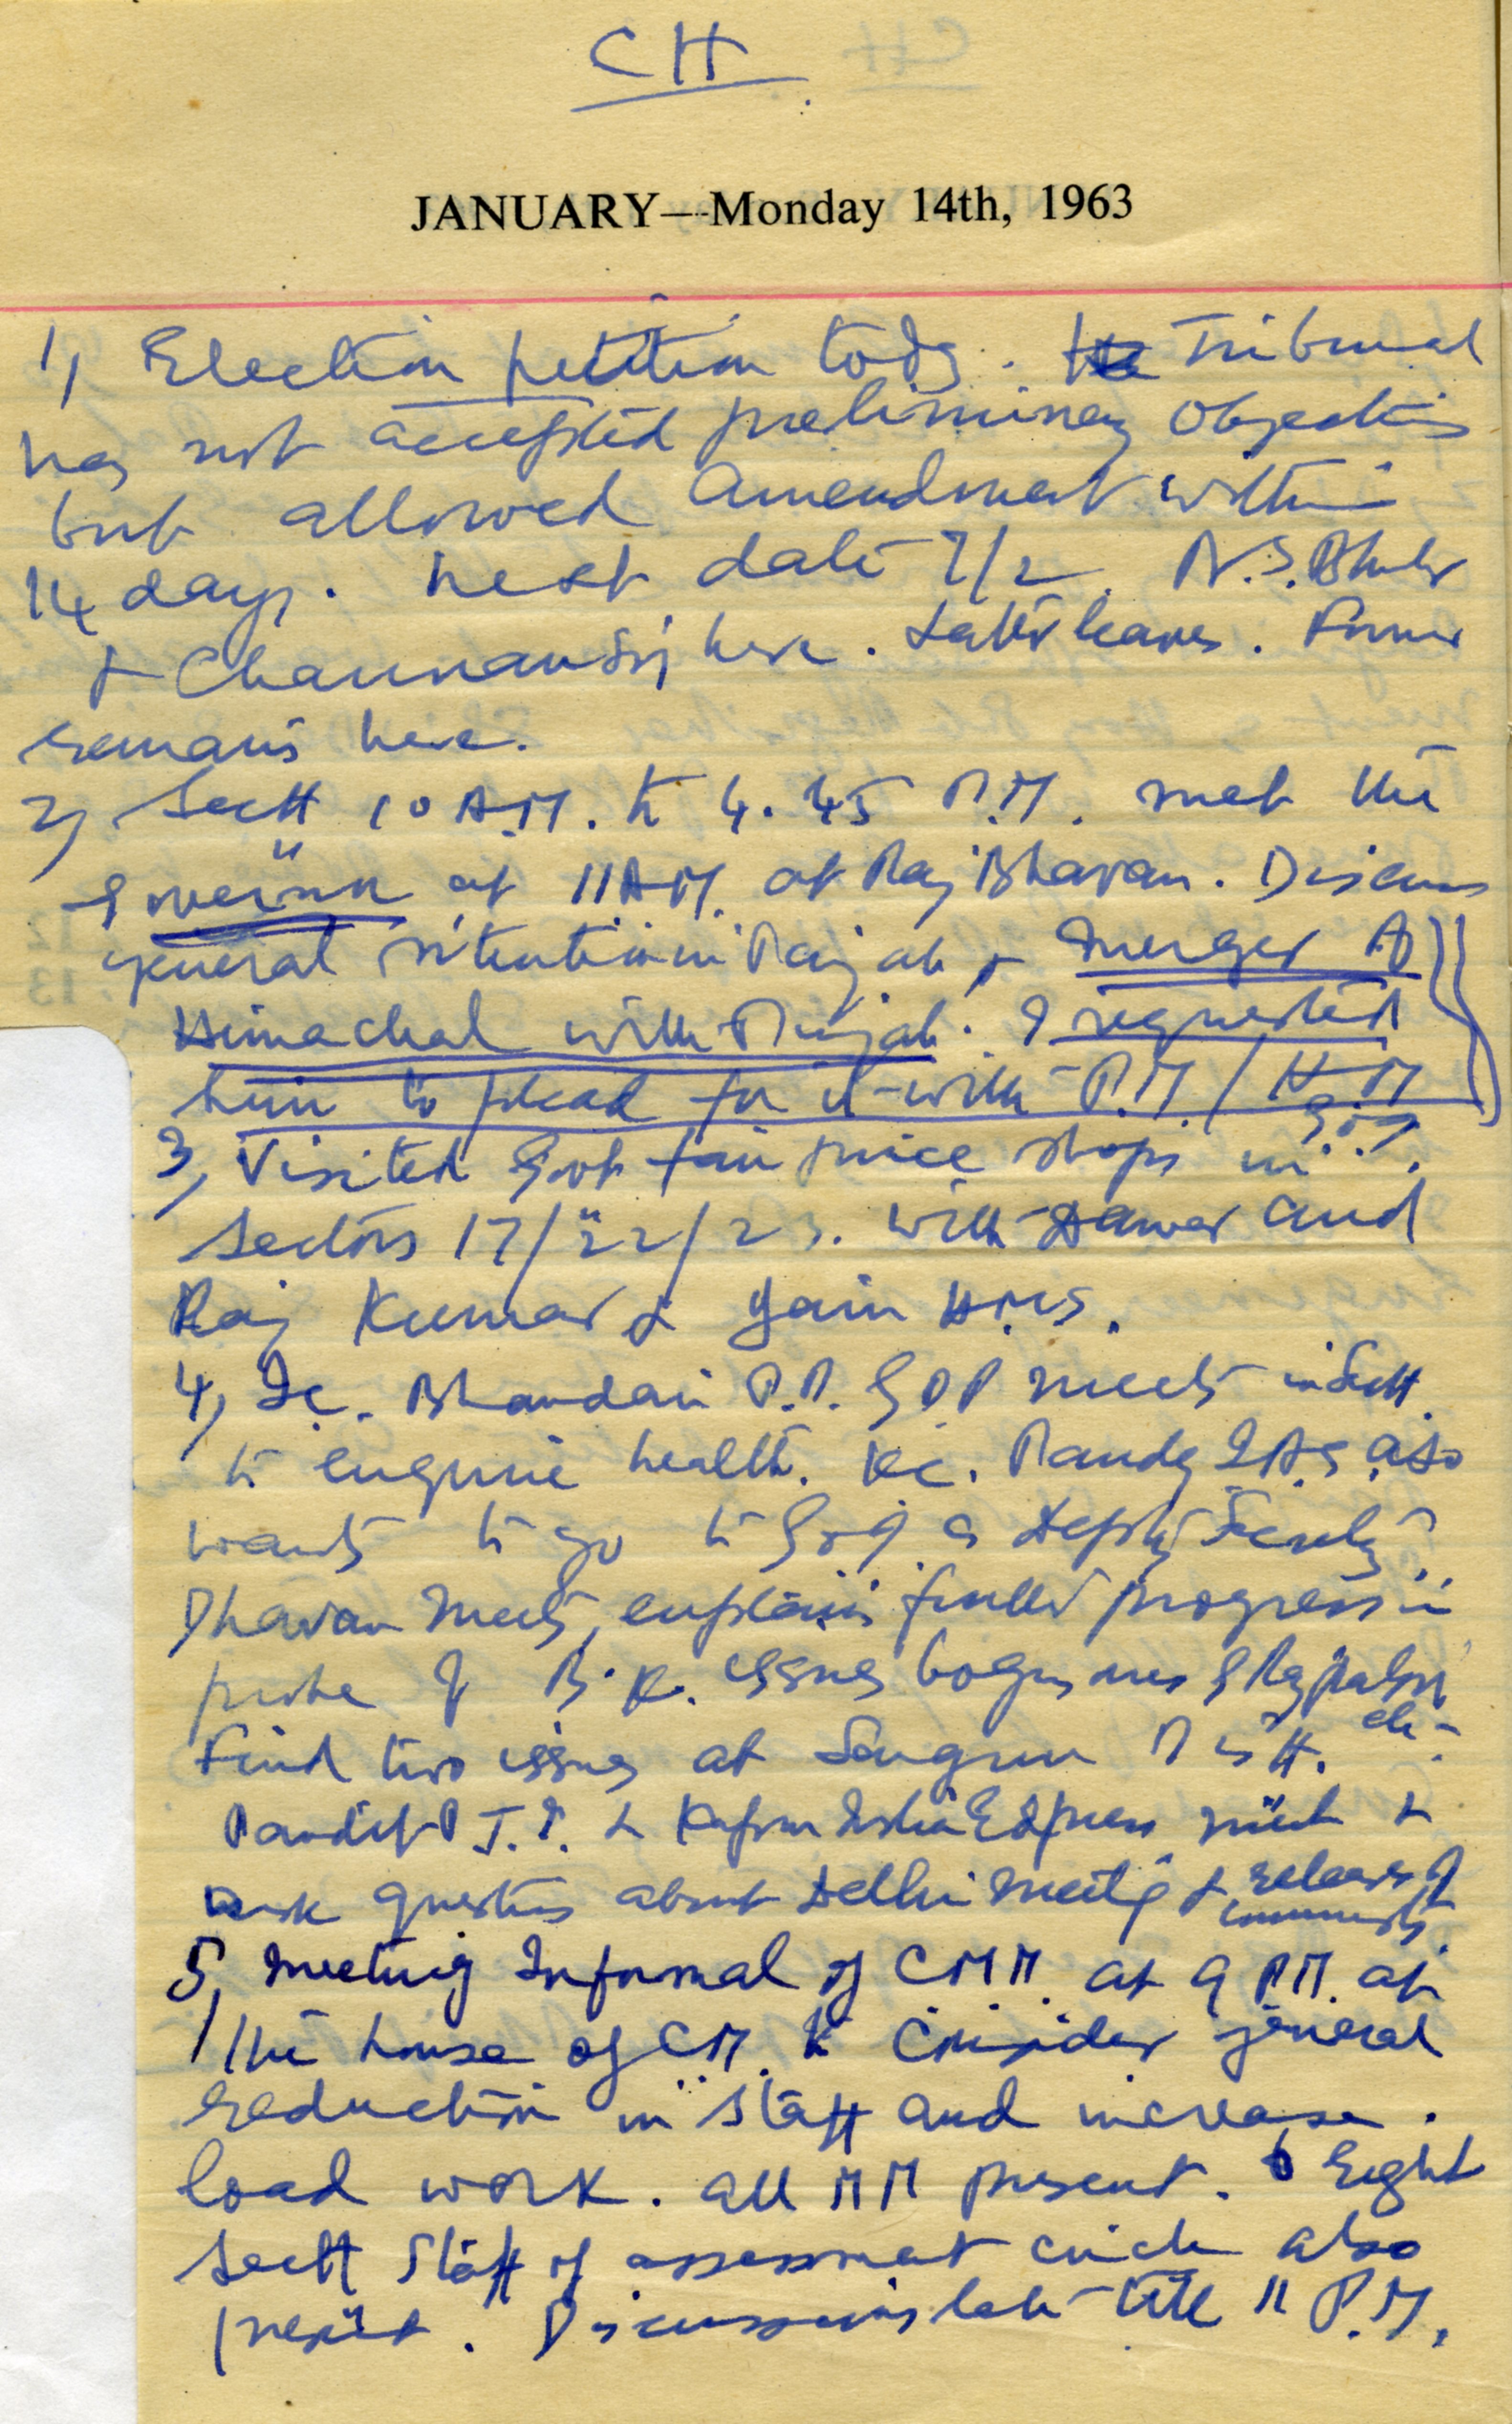 CH
JANUARY—Monday 14th, 1963
1) Election petition today. Tribunal
has not accepted preliminary objections
but allowed amendment within
14 days. Next date 7/2. N.S.
& here. Latter leaves. Former
remains here.
2) Sectt 10 A.M. to 4.45 P.M. met the
Governor at 11 A.M. at Raj Bhavan. Discuss
general situation in Punjab & merger of
Himachal with Punjab. I requested
him to plead for it with P.M./H.M
3) Visited Govt fair price shops in
Sectors 17/22/23. with and
Raj Kumar & Jain
4) Bhandari P.P. meets in Sectt
to enquire health. I.A.S also
wants to go to as Deputy
Dhavan meets, explains further progress in
probe of B.K. issues bogus
Find two issues at Sangrur Distt. etc.
Pandit P.T.I. & Kapur Indian Express meet &
ask questions about Delhi meeting & release of
communists
5) Meeting Informal of CMM. at 9 PM. at
the house of CM. to consider general
reduction in staff and increase
load work. All MM present. Eight
Sectt Staff of assessment also
present. Discussions late till 11 P.M.